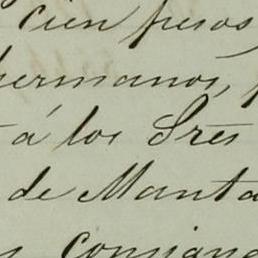 cien pesos,
hermanos,
á los Sres
de Manta